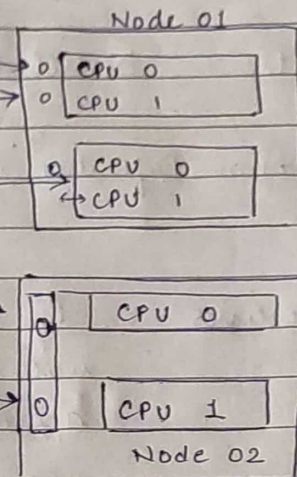 Node 01
0 CPU 0
0 CPU 1
0 CPU 0
CPU 1
0 CPU 0
0 CPU 1
Node 02